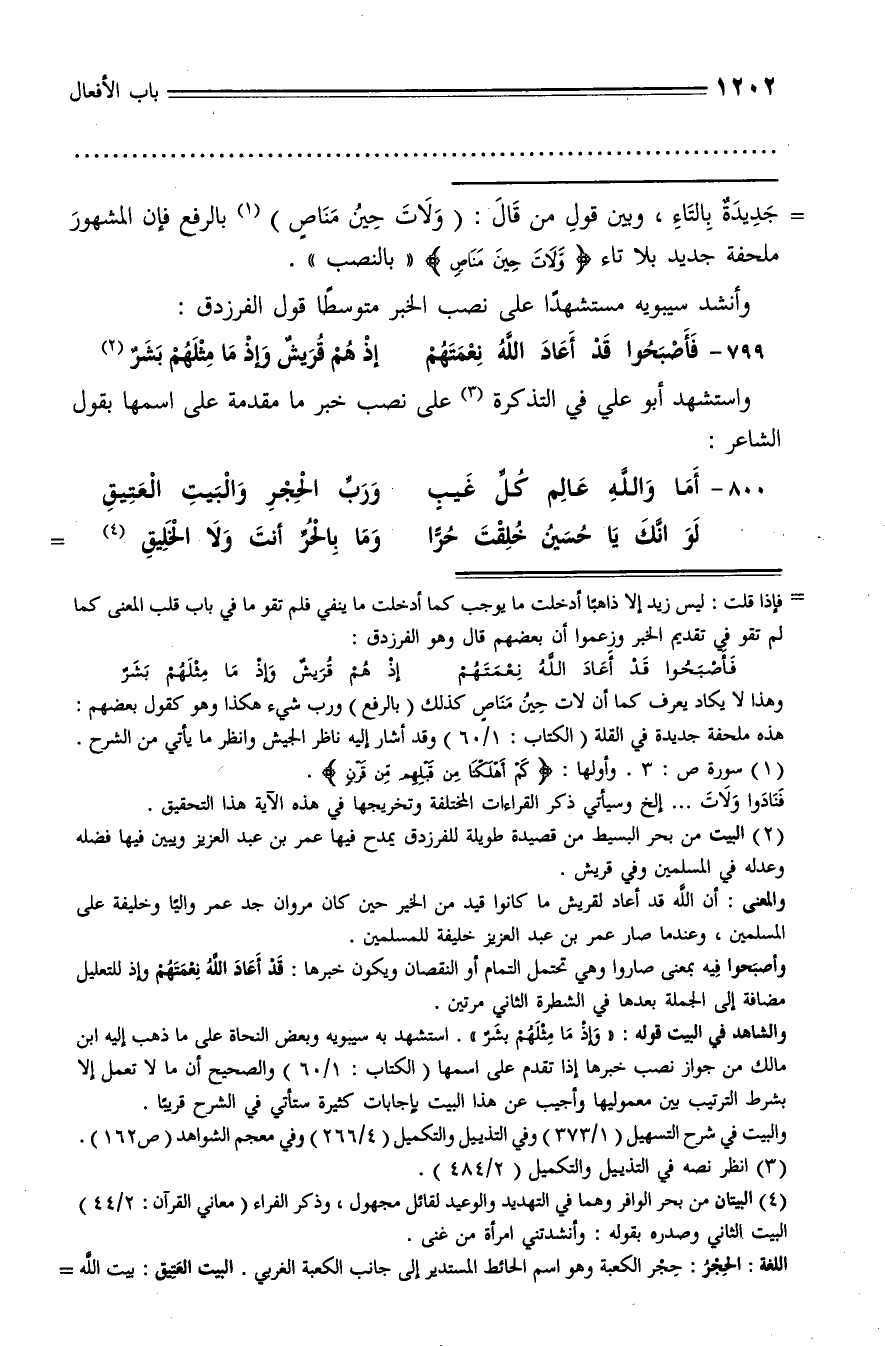 ١٢٠٢ باب الأفعال
................................................................................
= جَدِيدَةٌ بِالتَّاءِ ، وبين قولِ من قَالَ : ( وَلَاتَ حِينُ مَنَاصٍ ) (١) بالرفع فإن المشهورَ
ملحفة جديد بلا تاء ﴿ وَّلَاتَ حِينَ مَنَاصٍ ﴾ « بالنصب » .
وأنشد سيبويه مستشهدًا على نصب الخبر متوسطًا قول الفرزدق :
٧٩٩- فَأَصْبَحُوا قَدْ أَعَادَ اللَّهُ نِعْمَتَهُمْ إذْ هُمْ قُرَيشٌ وَإذْ مَا مِثْلَهُمْ بَشَرٌ (٢)
واستشهد أبو علي في التذكرة (٣) على نصب خبر ما مقدمة على اسمها بقول
الشاعر :
٨٠٠- أَمَا وَاللَّهِ عَالِمِ كُلِّ غَيبٍ وَرَبِّ الحِجْرِ وَالْبَيتِ الْعَتِيقِ
لَوَ انَّكَ يَا حُسَيْنُ خُلِقْتَ حُرًّا وَمَا بِالْحُرِّ أنتَ وَلَا الْخَلِيقِ (٤) =
= فإذا قلت : ليس زيد إلا ذاهبًا أدخلت ما يوجب كما أدخلت ما ينفي فلم تقو ما في باب قلب المعنى كما
لم تقو في تقديم الخبر وزعموا أن بعضهم قال وهو الفرزدق :
فَأَصْبَحُوا قَدْ أَعَادَ اللَّهُ نِعْمَتَهُمْ إذْ هُمْ قُرَيشٌ وَإذْ مَا مِثْلَهُمْ بَشَرٌ
وهذا لا يكاد يعرف كما أن لات حِينُ مَنَاصٍ كذلك ( بالرفع ) ورب شيء هكذا وهو كقول بعضهم :
هذه ملحفة جديدة في القلة ( الكتاب : ٦٠/١ ) وقد أشار إليه ناظر الجيش وانظر ما يأتي من الشرح .
(١) سورة ص : ٣ . وأولها : ﴿ كَمْ أَهْلَكْنَا مِن قَبْلِهِم مِّن قَرْنٍ ﴾ .
فَنَادَوا وَلَاتَ ... إلخ وسيأتي ذكر القراءات المختلفة وتخريجها في هذه الآية هذا التحقيق .
(٢) البيت من بحر البسيط من قصيدة طويلة للفرزدق يمدح فيها عمر بن عبد العزيز ويبين فيها فضله
وعدله في المسلمين وفي قريش .
والمعنى : أن اللَّه قد أعاد لقريش ما كانوا قيد من الخير حين كان مروان جد عمر واليًا وخليفة على
المسلمين ، وعندما صار عمر بن عبد العزيز خليفة للمسلمين .
وأصبَحوا فِيه بمعنى صاروا وهي تحتمل التمام أو النقصان ويكون خبرها : قَدْ أَعَادَ اللَّهُ نِعْمَتَهُمْ وإذ للتعليل
مضافة إلى الجملة بعدها في الشطرة الثاني مرتين .
والشاهد في البيت قوله : « وَإِذْ مَا مِثْلَهُمْ بشَرٌ » . استشهد به سيبويه وبعض النحاة على ما ذهب إليه ابن
مالك من جواز نصب خبرها إذا تقدم على اسمها ( الكتاب : ٦٠/١ ) والصحيح أن ما لا تعمل إلا
بشرط الترتيب بين معموليها وأجيب عن هذا البيت بإجابات كثيرة ستأتي في الشرح قريبًا .
والبيت في شرح التسهيل ( ٣٧٣/١ ) وفي التذييل والتكميل ( ٢٦٦/٤ ) وفي معجم الشواهد ( ص١٦٢ ) .
(٣) انظر نصه في التذييل والتكميل ( ٤٨٤/٢ ) .
(٤) البيتان من بحر الوافر وهما في التهديد والوعيد لقائل مجهول ، وذكر الفراء ( معاني القرآن : ٤٤/٢ )
البيت الثاني وصدره بقوله : وأنشدتني امرأة من غنى .
اللغة : الحِجْرُ : حِجْر الكعبة وهو اسم الحائط المستدير إلى جانب الكعبة الغربي . البيت العَتِيق : بيت اللَّه =